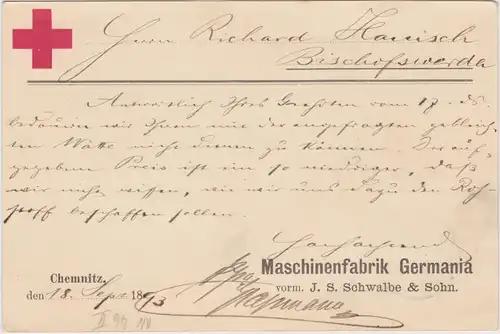 Herrn Richard Hanisch
Bischofswerda
Antwortlich Ihres Geehrten vom 17. ds.
bedauern wir Ihnen mit der angefragten gebleich-
ten Watte nicht dienen zu können. Der auf-
gegebene Preis ist ein so niedriger, daß
wir nicht wissen, wie wir uns dazu den Roh-
stoff beschaffen sollen.
Hochachtend
Maschinenfabrik Germania
vorm. J. S. Schwalbe & Sohn.
Chemnitz,
den 18. Sept. 1893